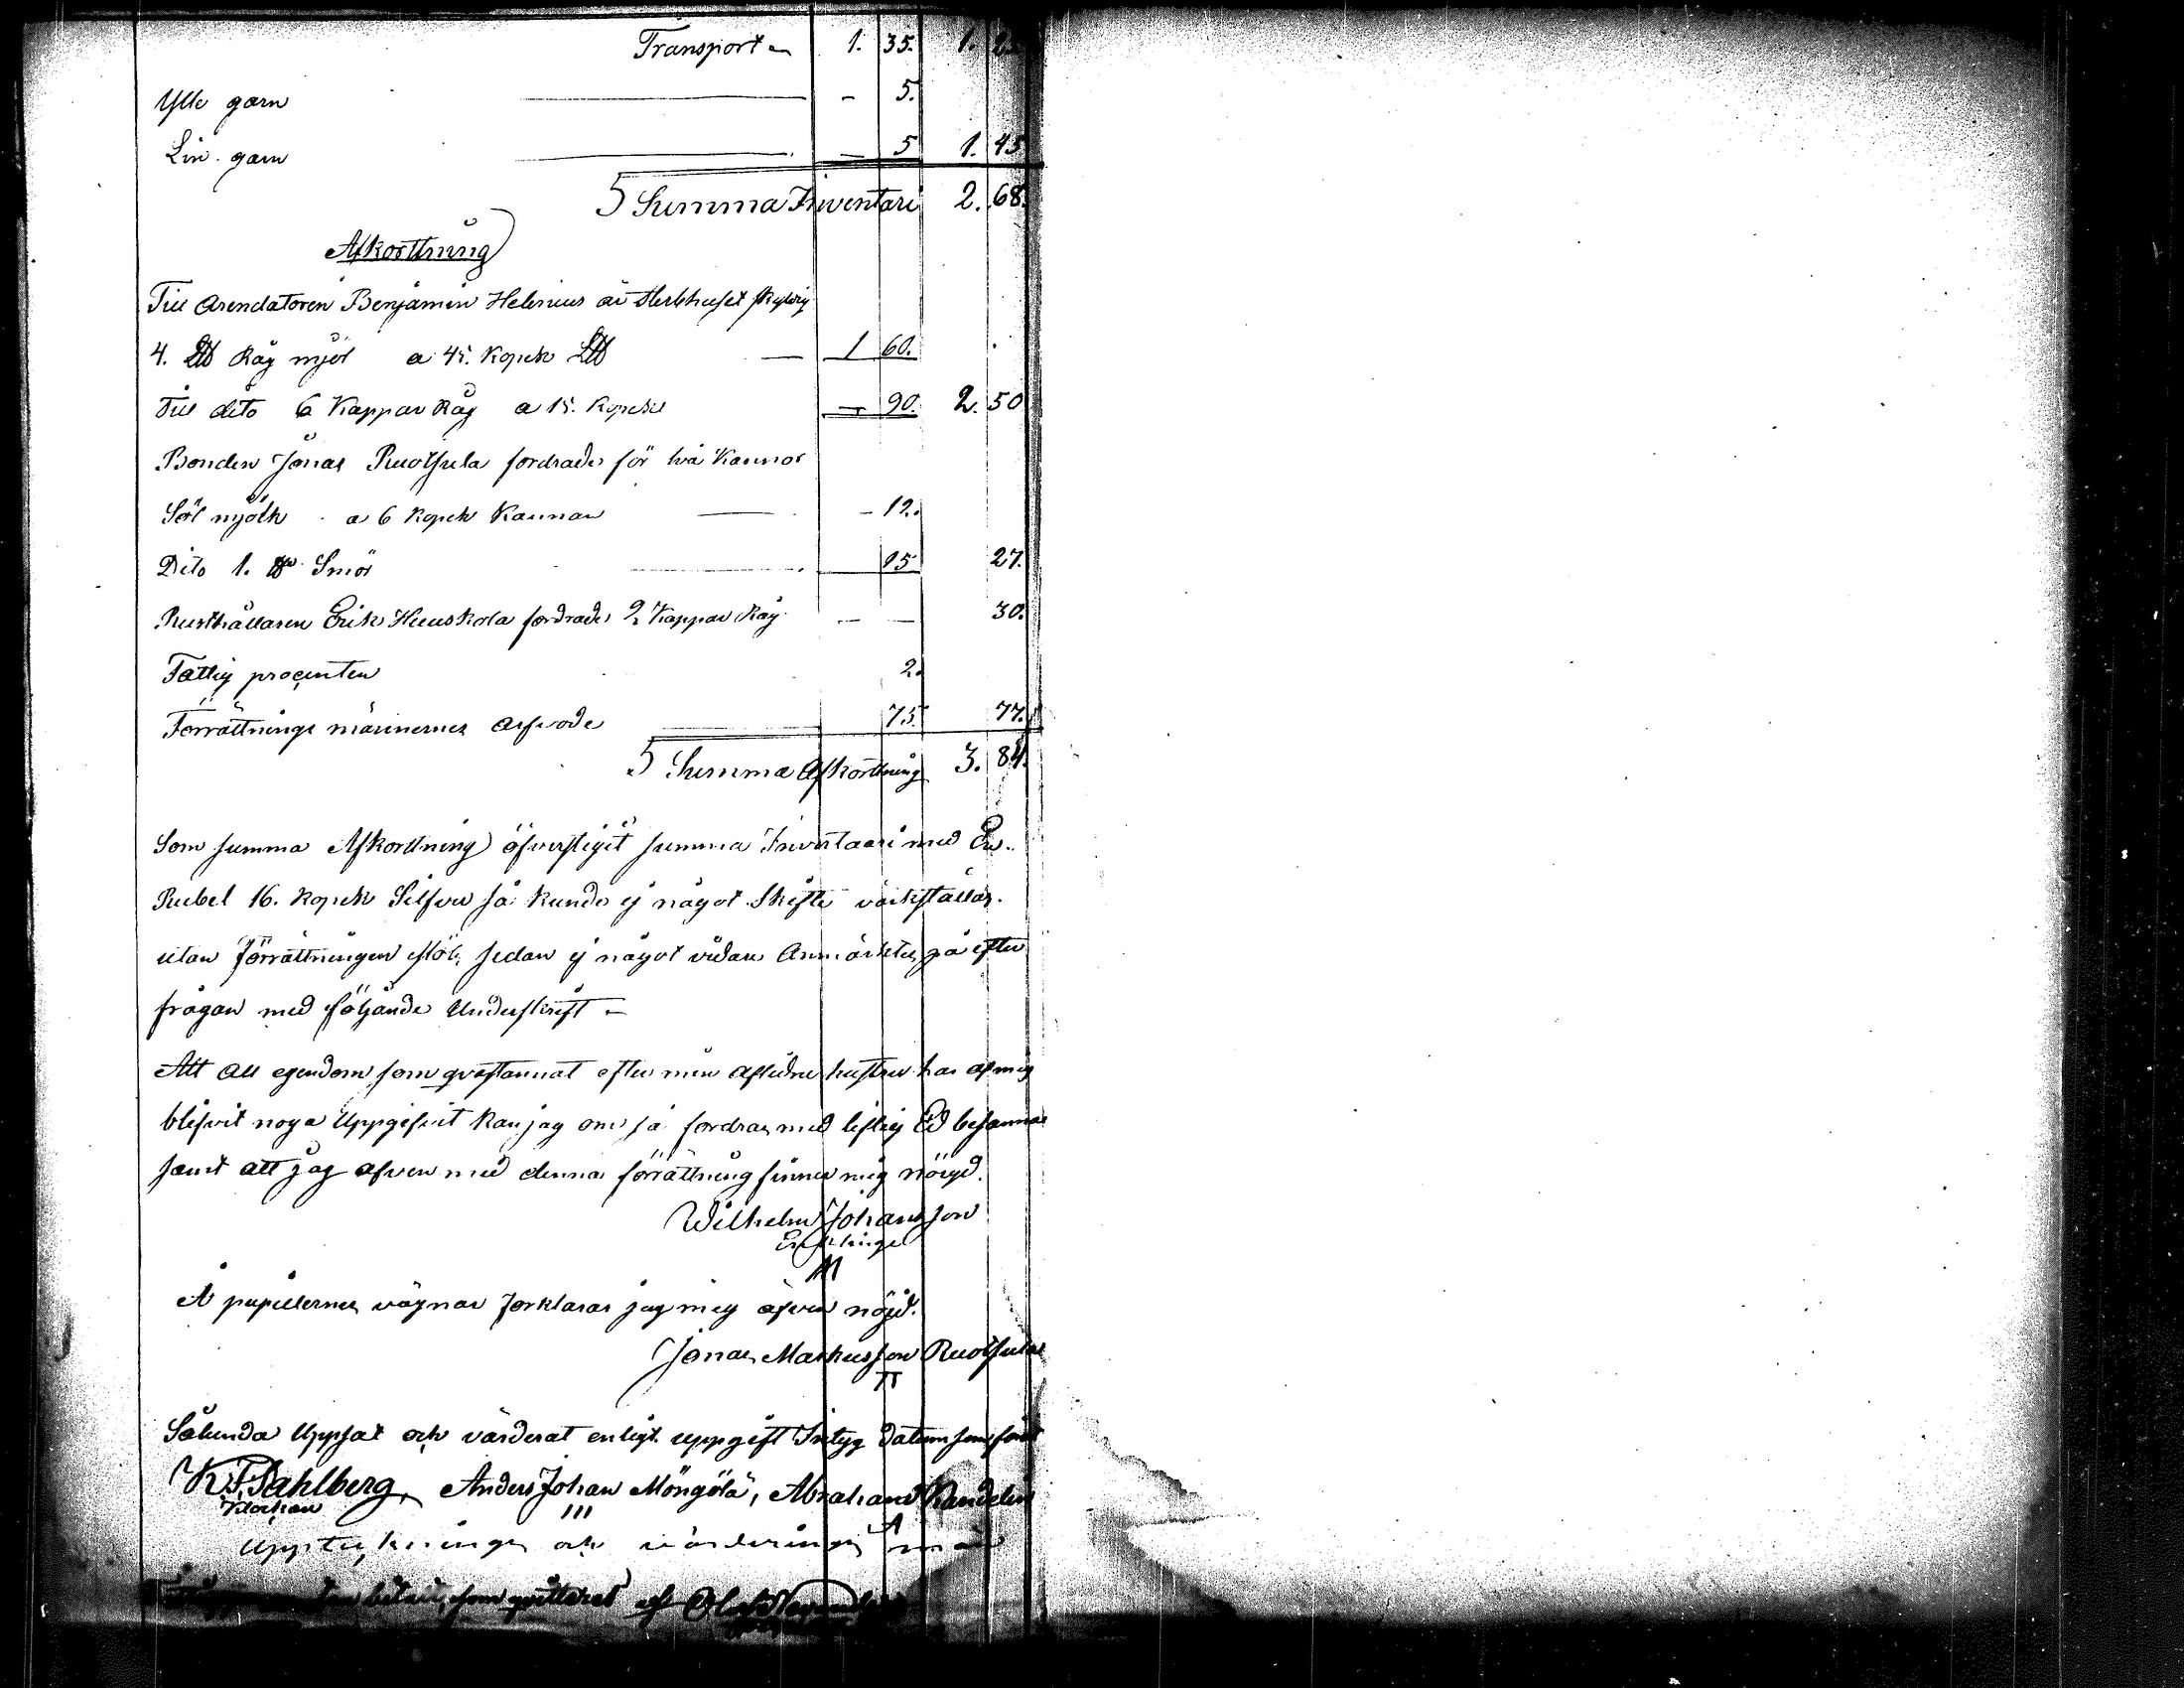 Transport 1. 35. 1. 2
Ylle garn — - 5.
Lin garn — — 5 1. 45
Summa Inventari 2. 68.
Afkorttning
Till Arendatoren Benjamin Helenius är Sterbhuset skyldig
4. L℔ Råg mjöl a 45. Kopek L℔ — 1 60.
Till dito 6 Kappar Råg a 15. Kopek — 90. 2. 50
Bonden Jonas Ruotsula fordrade för två Kannor
Söt mjölk a 6 Kopek Kannan — - 12.
Dito 1. ℔ Smör — 15 27.
Rusthållaren Erik Huuskola fordrade 2 Kappar Råg — — 30.
Fattig procenten 2.
Förrättnings männernes Arfvode — 75. 77.
Summa Afkorttning 3. 84.
Som summa Afkorttning öfverstigit summa Inventaari med En
Rubel 16. Kopek Silfver så kunde ej något Skifte värkställas.
utan Förrättningen slöts, sedan ej något vidare Anmärktes på efter
frågan med följande Underskrift
Att All egendom som qvarstannat efter min aflidne hustru har af mig
blifvit noga Uppgifvit kan jag om så fordras med liflig Ed besanna
samt att jag äfven med denna förrättning finner mig nöijd.
Wilhelm Johansson
Enkling
Å pupillernes vägnar förklarar jag mig äfven nöijd.
Jonas Markusson Ruotsula
Sålunda Uppsat och värderat enligt uppgift Intyg datum som förut
K. F. Dahlberg, Anders Johan Möngölä, Abraham Randelin
Klockan
III
Upptecknings och värderings män
som qvitteras af Olof